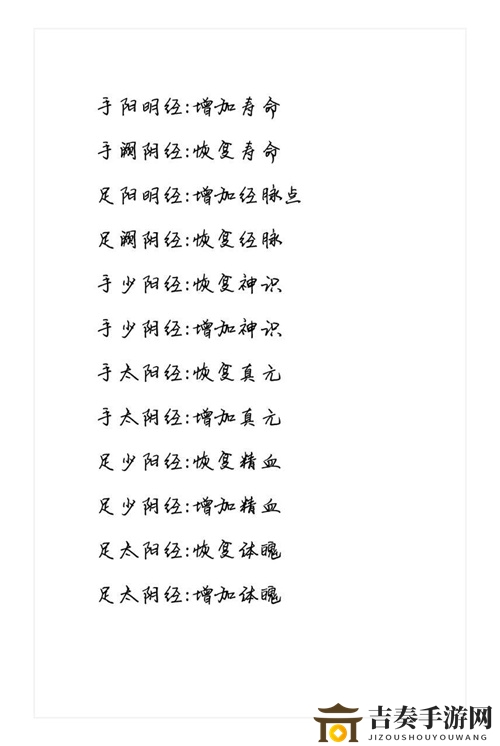 手阳明经:增加寿命
手阙阴经:恢复寿命
足阳明经:增加经脉点
足阙阴经:恢复经脉
手少阳经:恢复神识
手少阴经:增加神识
手太阳经:恢复真元
手太阴经:增加真元
足少阳经:恢复精血
足少阴经:增加精血
足太阳经:恢复体魄
足太阴经:增加体魄
吉奏手游网
JIZOUSHOUYOUWANG